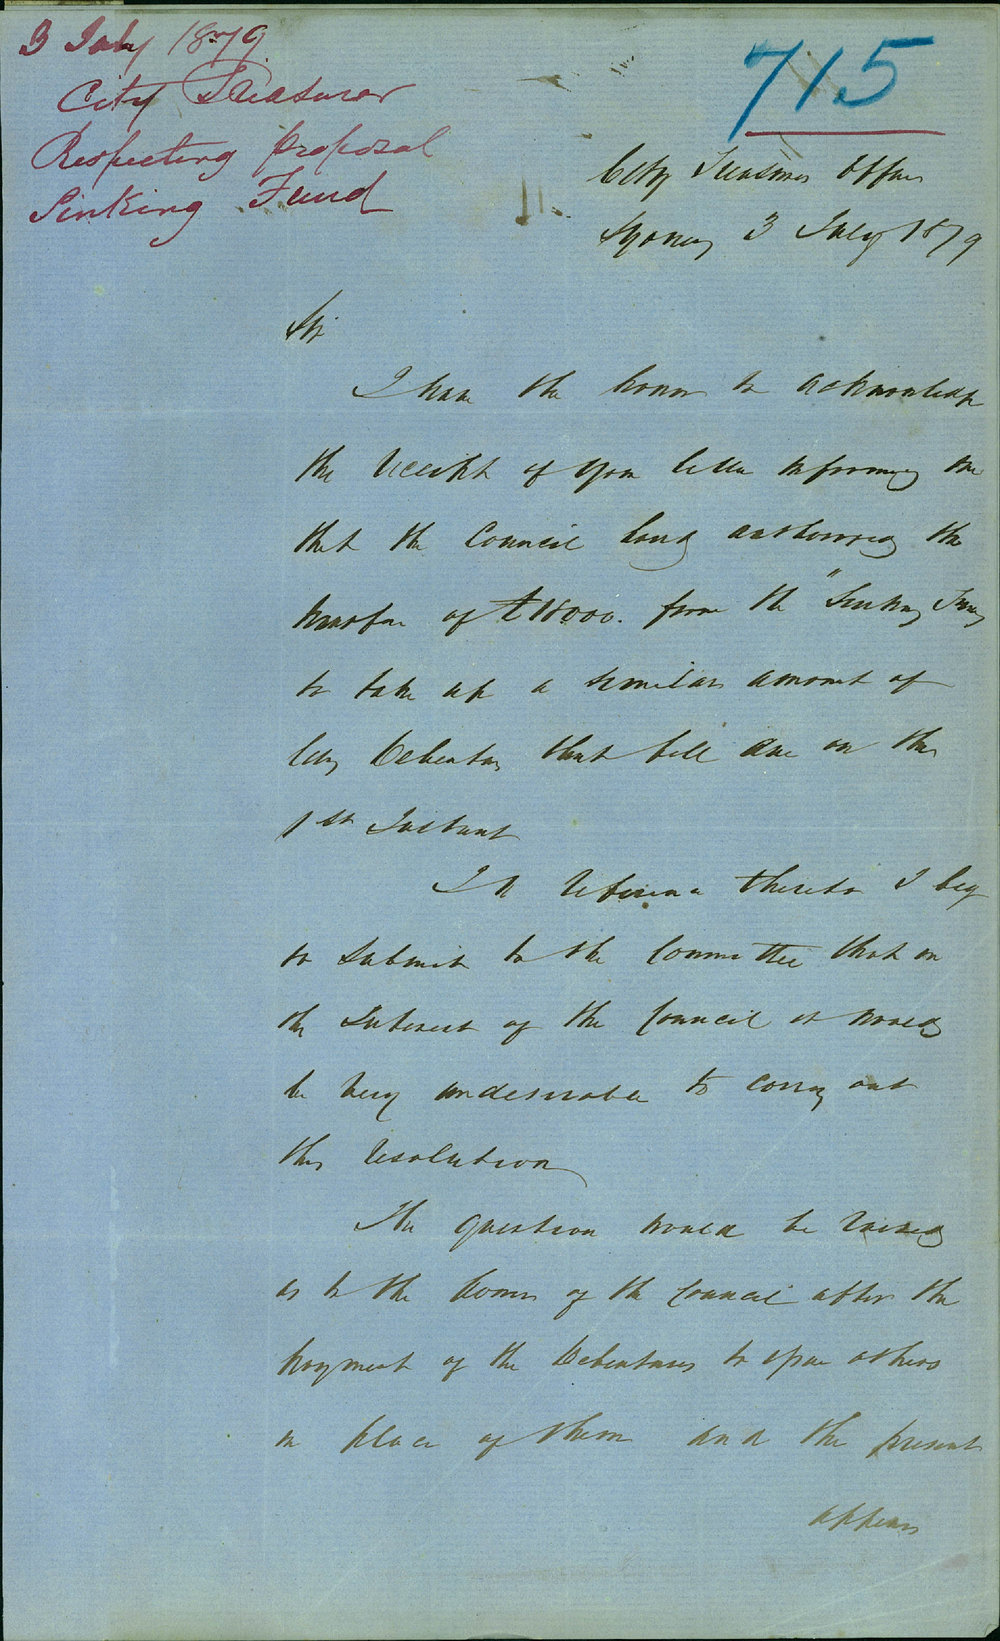 3 July 1879
City Treasurer
Respecting proposal
Sinking Fund
715
City Treasurers Office
Sydney 3 July 1879
Sir
I have the honor to acknowledge
the receipt of your letter informing me
that the Council had authorised the
transfer of £18000. from the "Sinking Fund
to take up a similar amount of
City Debentures that fell due on the
1st Instant
In reference thereto I beg
to submit to the Committee that in
the Interest of the Council it would
be very undesirable to carry out
this resolution
The question would be raised
as to the power of the Council after the
payment of the Debentures to issue others
in place of them and the present
appears